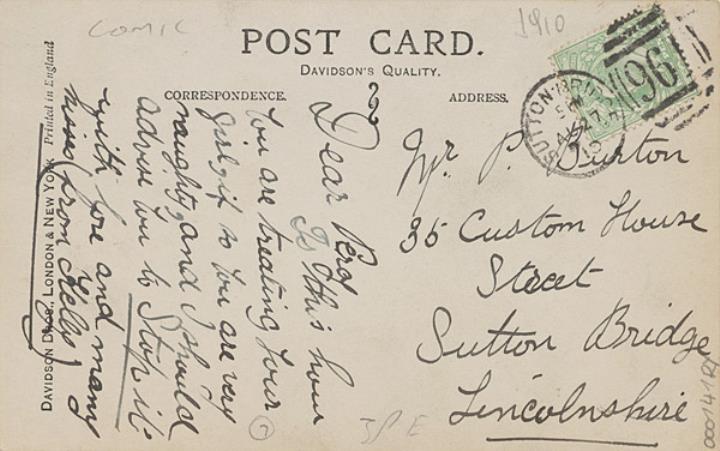 COMIC
1910
POST CARD.
DAVIDSON'S QUALITY.
CORRESPONDENCE.
ADDRESS.
Dear Perd
Is this how
You are treating Your
girl if so You are very
naughty and I should
advise You to Stop it.
with love and many
kisses from Kelly
Mr. P. Durton
35 Custom House
Street
Sutton Bridge
Lincolnshire
SUTTON BRIDGE
AU 27
10
96
DAVIDSON BROS., LONDON & NEW YORK Printed in England
E